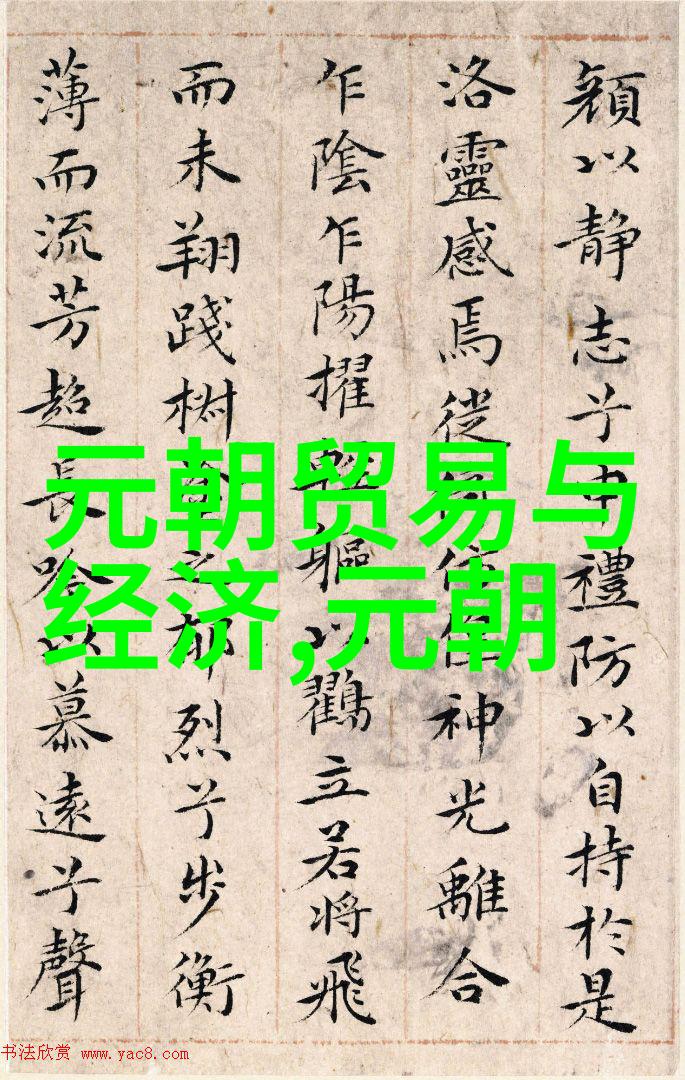 顔以静志兮申禮防以自持於是
洛靈感焉徙神光離合
乍陰乍陽擢輕軀以鸖立若将飛
而未翔踐椒塗之郁烈兮步衡
薄而流芳超長吟以慕遠兮聲
元朝贸易与
经济,元朝
书法欣赏 www.yac8.com